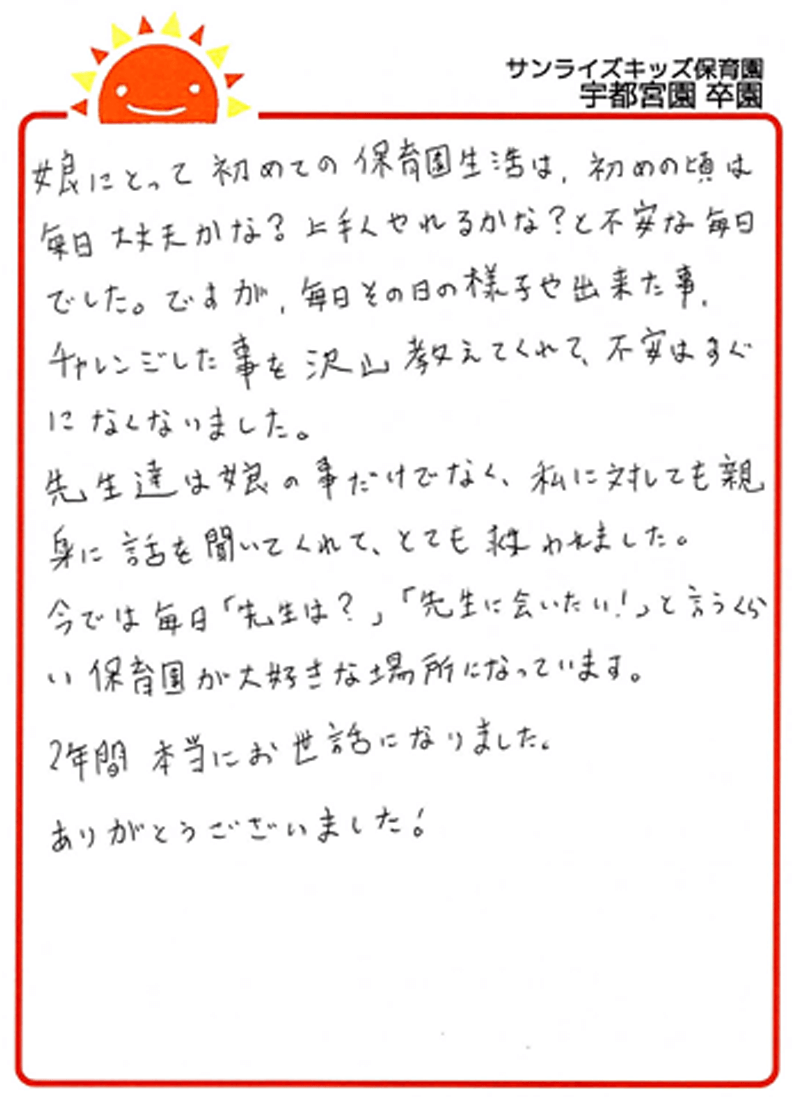 サンライズキッズ保育園
宇都宮園 卒園
娘にとって初めての保育園生活は、初めの頃は
毎日大丈夫かな?上手くやれるかな?と不安な毎日
でした。ですが、毎日その日の様子や出来た事、
チャレンジした事を沢山教えてくれて、不安はすぐ
になくなりました。
先生達は娘の事だけでなく、私に対しても親
身に話を聞いてくれて、とても救われました。
今では毎日「先生は?」「先生に会いたい!」と言うくら
い保育園が大好きな場所になっています。
2年間本当にお世話になりました。
ありがとうございました!